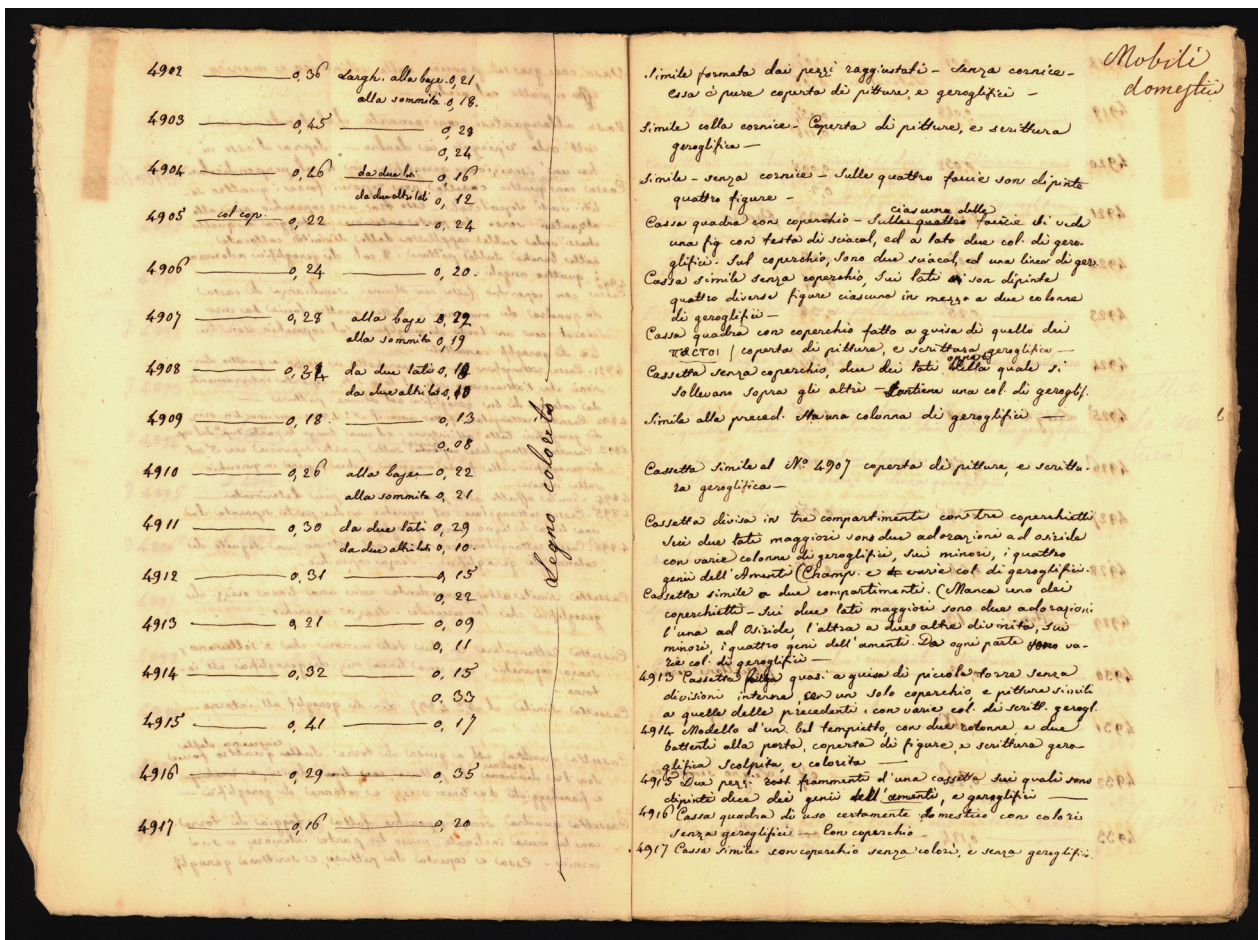 4902 0,36 Largh. alla base. 0,21
alla sommità 0,18.
4903 0,45 0,28
0,24
4904 0,46 da due lati 0,16
da due altri lati 0,12
4905 col cop. 0,22 0,24
4906 0,24 0,20.
4907 0,28 alla base 0,22
alla sommità 0,19
4908 da due lati
da due altri lati
4909 0,18 0,13
0,08
4910 0,26 alla base 0,22
alla sommità 0,21
4911 0,30 da due lati 0,29
da due altri lati 0,10.
4912 0,31 0,15
0,22
4913 0,21 0,09
0,11
4914 0,32 0,15
0,33
4915 0,41 0,17
4916 0,29 0,35
4917 0,16 0,20
Legno colorito
Mobili
domestici
Simile formata dai pezzi raggiustati – Senza cornice –
essa è pure coperta di pitture, e geroglifici –
Simile colla cornice – Coperta di pitture, e scrittura
geroglifica –
Simile – senza cornice – Sulle quattro faccie son dipinte
quattro figure –
ciascuna delle
Cassa quadra con coperchio – Sulle quattro faccie si vede
una fig con testa di sciacal, ed a lato due col. di gero-
glifici. Sul coperchio, sono due sciacal, ed una linea di ger.
Cassa simile senza coperchio, Sui lati son dipinte
quattro diverse figure ciascuna in mezzo a due colonne
di geroglifici –
Cassa quadra con coperchio fatto a guisa di quello dei
ΠΑCΤΟΙ / coperta di pitture, e scrittura geroglifica –
opposti
Cassetta senza coperchio, due dei lati della quale si
sollevano sopra gli altri – Contiene una col. di geroglif.
Simile alla preced. Ha una colonna di geroglifici –
Cassetta Simile al Nº 4907 coperta di pitture, e scrittu-
ra geroglifica –
Cassetta divisa in tre compartimenti con tre coperchietti
Sui due lati maggiori sono due adorazioni ad osiride
con varie colonne di geroglifici, sui minori, i quattro
genii dell'Amenti (Champ. e varie col di geroglifici.
Cassetta simile a due compartimenti. (Manca uno dei
coperchietti – Sui due lati maggiori sono due adorazioni
l'una ad Osiride, l'altra a due altre divinità, sui
minori, i quattro genii dell'amenti. Da ogni parte sono va-
rie col. di geroglifici –
4913 Cassetta fatta quasi a guisa di piccola torre senza
divisioni interne, con un solo coperchio, e pitture simili
a quelle delle precedenti, con varie col. di scritt. gerogl.
4914 Modello d'un bel tempietto, con due colonne e due
battenti alla porta, coperta di figure, e scrittura gero-
glifica scolpita, e colorita –
4915 Due pezzi frammenti d'una cassetta sui quali sono
dipinte dei genii dell'amenti, e geroglifici –
4916 Cassa quadra di uso certamente domestico con colori
senza geroglifici – Con coperchio –
4917 Cassa simile con coperchio senza colori, e senza geroglifici.